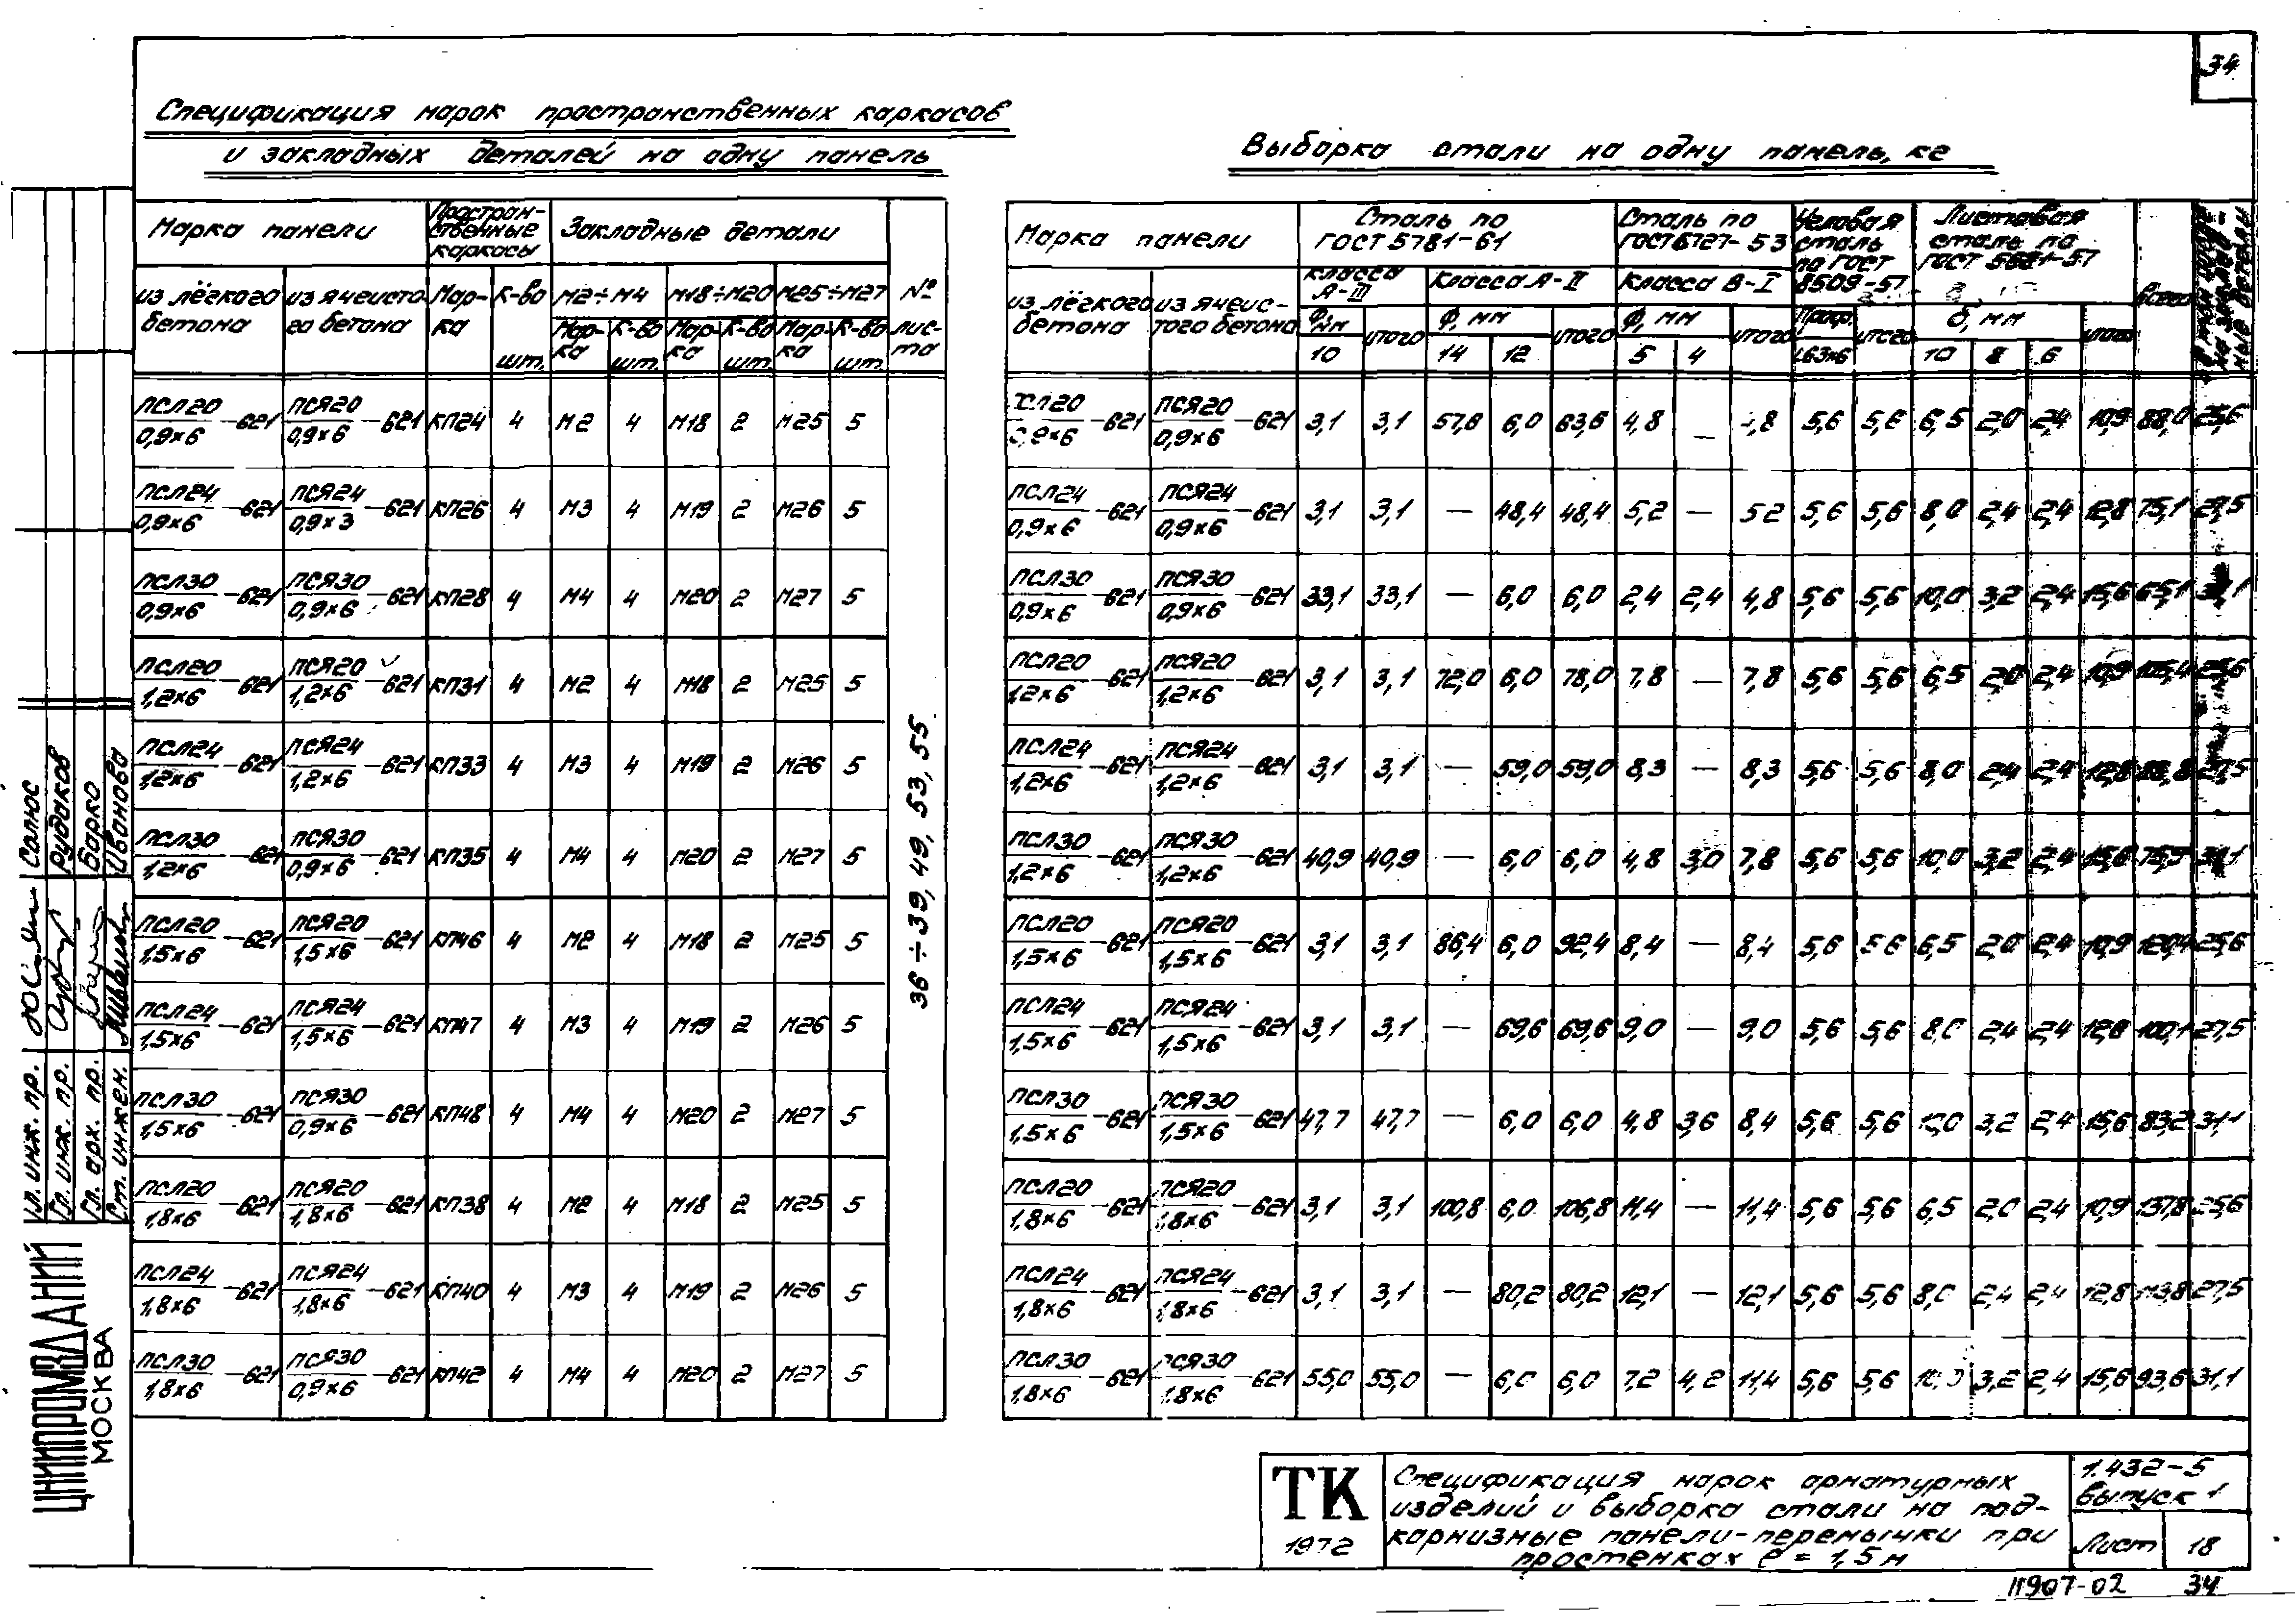 34
Спецификация марок пространственных каркасов
и закладных деталей на одну панель
Марка панели | Пространственные каркасы | Закладные детали | № листа
из лёгкого бетона | из ячеистого бетона | Марка | К-во шт. | М2÷М4 Марка | К-во шт. | М18÷М20 Марка | К-во шт. | М25÷М27 Марка | К-во шт.
ПСЛ20/0,9×6 -621 | ПСЯ20/0,9×6 -621 | КП24 | 4 | М2 | 4 | М18 | 2 | М25 | 5
ПСЛ24/0,9×6 -621 | ПСЯ24/0,9×3 -621 | КП26 | 4 | М3 | 4 | М19 | 2 | М26 | 5
ПСЛ30/0,9×6 -621 | ПСЯ30/0,9×6 -621 | КП28 | 4 | М4 | 4 | М20 | 2 | М27 | 5
ПСЛ20/1,2×6 -621 | ПСЯ20/1,2×6 -621 | КП31 | 4 | М2 | 4 | М18 | 2 | М25 | 5
ПСЛ24/1,2×6 -621 | ПСЯ24/1,2×6 -621 | КП33 | 4 | М3 | 4 | М19 | 2 | М26 | 5
ПСЛ30/1,2×6 -621 | ПСЯ30/0,9×6 -621 | КП35 | 4 | М4 | 4 | М20 | 2 | М27 | 5
ПСЛ20/1,5×6 -621 | ПСЯ20/1,5×6 -621 | КП46 | 4 | М2 | 4 | М18 | 2 | М25 | 5
ПСЛ24/1,5×6 -621 | ПСЯ24/1,5×6 -621 | КП47 | 4 | М3 | 4 | М19 | 2 | М26 | 5
ПСЛ30/1,5×6 -621 | ПСЯ30/0,9×6 -621 | КП48 | 4 | М4 | 4 | М20 | 2 | М27 | 5
ПСЛ20/1,8×6 -621 | ПСЯ20/1,8×6 -621 | КП38 | 4 | М2 | 4 | М18 | 2 | М25 | 5
ПСЛ24/1,8×6 -621 | ПСЯ24/1,8×6 -621 | КП40 | 4 | М3 | 4 | М19 | 2 | М26 | 5
ПСЛ30/1,8×6 -621 | ПСЯ30/0,9×6 -621 | КП42 | 4 | М4 | 4 | М20 | 2 | М27 | 5
36÷39, 49, 53, 55
Выборка стали на одну панель, кг
Марка панели | Сталь по ГОСТ 5781-61 | Сталь по ГОСТ 6727-53 | Угловая сталь по ГОСТ 8509-57 | Листовая сталь по ГОСТ 5681-57 | Всего
из лёгкого бетона | из ячеистого бетона | класса А-III | класса А-II | класса В-I
Ф, мм 10 | итого | Ф, мм 14 | 12 | итого | Ф, мм 5 | 4 | итого | Проф. L63×6 | итого | δ, мм 10 | 8 | 6 | итого
ПСЛ20/0,9×6 -621 | ПСЯ20/0,9×6 -621 | 3,1 | 3,1 | 57,6 | 6,0 | 63,6 | 4,8 | — | 4,8 | 5,6 | 5,6 | 6,5 | 2,0 | 2,4 | 10,9 | 88,0 | 25,6
ПСЛ24/0,9×6 -621 | ПСЯ24/0,9×6 -621 | 3,1 | 3,1 | — | 48,4 | 48,4 | 5,2 | — | 5,2 | 5,6 | 5,6 | 8,0 | 2,4 | 2,4 | 12,8 | 75,1 | 27,5
ПСЛ30/0,9×6 -621 | ПСЯ30/0,9×6 -621 | 33,1 | 33,1 | — | 6,0 | 6,0 | 2,4 | 2,4 | 4,8 | 5,6 | 5,6 | 10,0 | 3,2 | 2,4 | 15,6 | 65,1 | 31,1
ПСЛ20/1,2×6 -621 | ПСЯ20/1,2×6 -621 | 3,1 | 3,1 | 72,0 | 6,0 | 78,0 | 7,8 | — | 7,8 | 5,6 | 5,6 | 6,5 | 2,0 | 2,4 | 10,9 | 105,4 | 25,6
ПСЛ24/1,2×6 -621 | ПСЯ24/1,2×6 -621 | 3,1 | 3,1 | — | 59,0 | 59,0 | 8,3 | — | 8,3 | 5,6 | 5,6 | 8,0 | 2,4 | 2,4 | 12,8 | 88,8 | 27,5
ПСЛ30/1,2×6 -621 | ПСЯ30/1,2×6 -621 | 40,9 | 40,9 | — | 6,0 | 6,0 | 4,8 | 3,0 | 7,8 | 5,6 | 5,6 | 10,0 | 3,2 | 2,4 | 15,6 | 75,9 | 31,1
ПСЛ20/1,5×6 -621 | ПСЯ20/1,5×6 -621 | 3,1 | 3,1 | 86,4 | 6,0 | 92,4 | 8,4 | — | 8,4 | 5,6 | 5,6 | 6,5 | 2,0 | 2,4 | 10,9 | 120,4 | 25,6
ПСЛ24/1,5×6 -621 | ПСЯ24/1,5×6 -621 | 3,1 | 3,1 | — | 69,6 | 69,6 | 9,0 | — | 9,0 | 5,6 | 5,6 | 8,0 | 2,4 | 2,4 | 12,8 | 100,1 | 27,5
ПСЛ30/1,5×6 -621 | ПСЯ30/1,5×6 -621 | 47,7 | 47,7 | — | 6,0 | 6,0 | 4,8 | 3,6 | 8,4 | 5,6 | 5,6 | 10,0 | 3,2 | 2,4 | 15,6 | 83,2 | 31,1
ПСЛ20/1,8×6 -621 | ПСЯ20/1,8×6 -621 | 3,1 | 3,1 | 100,8 | 6,0 | 106,8 | 11,4 | — | 11,4 | 5,6 | 5,6 | 6,5 | 2,0 | 2,4 | 10,9 | 137,8 | 25,6
ПСЛ24/1,8×6 -621 | ПСЯ24/1,8×6 -621 | 3,1 | 3,1 | — | 80,2 | 80,2 | 12,1 | — | 12,1 | 5,6 | 5,6 | 8,0 | 2,4 | 2,4 | 12,8 | 113,8 | 27,5
ПСЛ30/1,8×6 -621 | ПСЯ30/1,8×6 -621 | 55,0 | 55,0 | — | 6,0 | 6,0 | 7,2 | 4,2 | 11,4 | 5,6 | 5,6 | 10,0 | 3,2 | 2,4 | 15,6 | 93,6 | 31,1
Гл. инж. пр. Салюс
Гл. инж. пр. Рудаков
Гл. арх. пр. Барко
Ст. инжен. Иванова
ЦНИИПРОМЗДАНИЙ
МОСКВА
ТК
1972
Спецификация марок арматурных
изделий и выборка стали на под-
карнизные панели-перемычки при
простенках ℓ = 1,5 м
1.432-5
Выпуск 1
Лист 18
11907-02 34